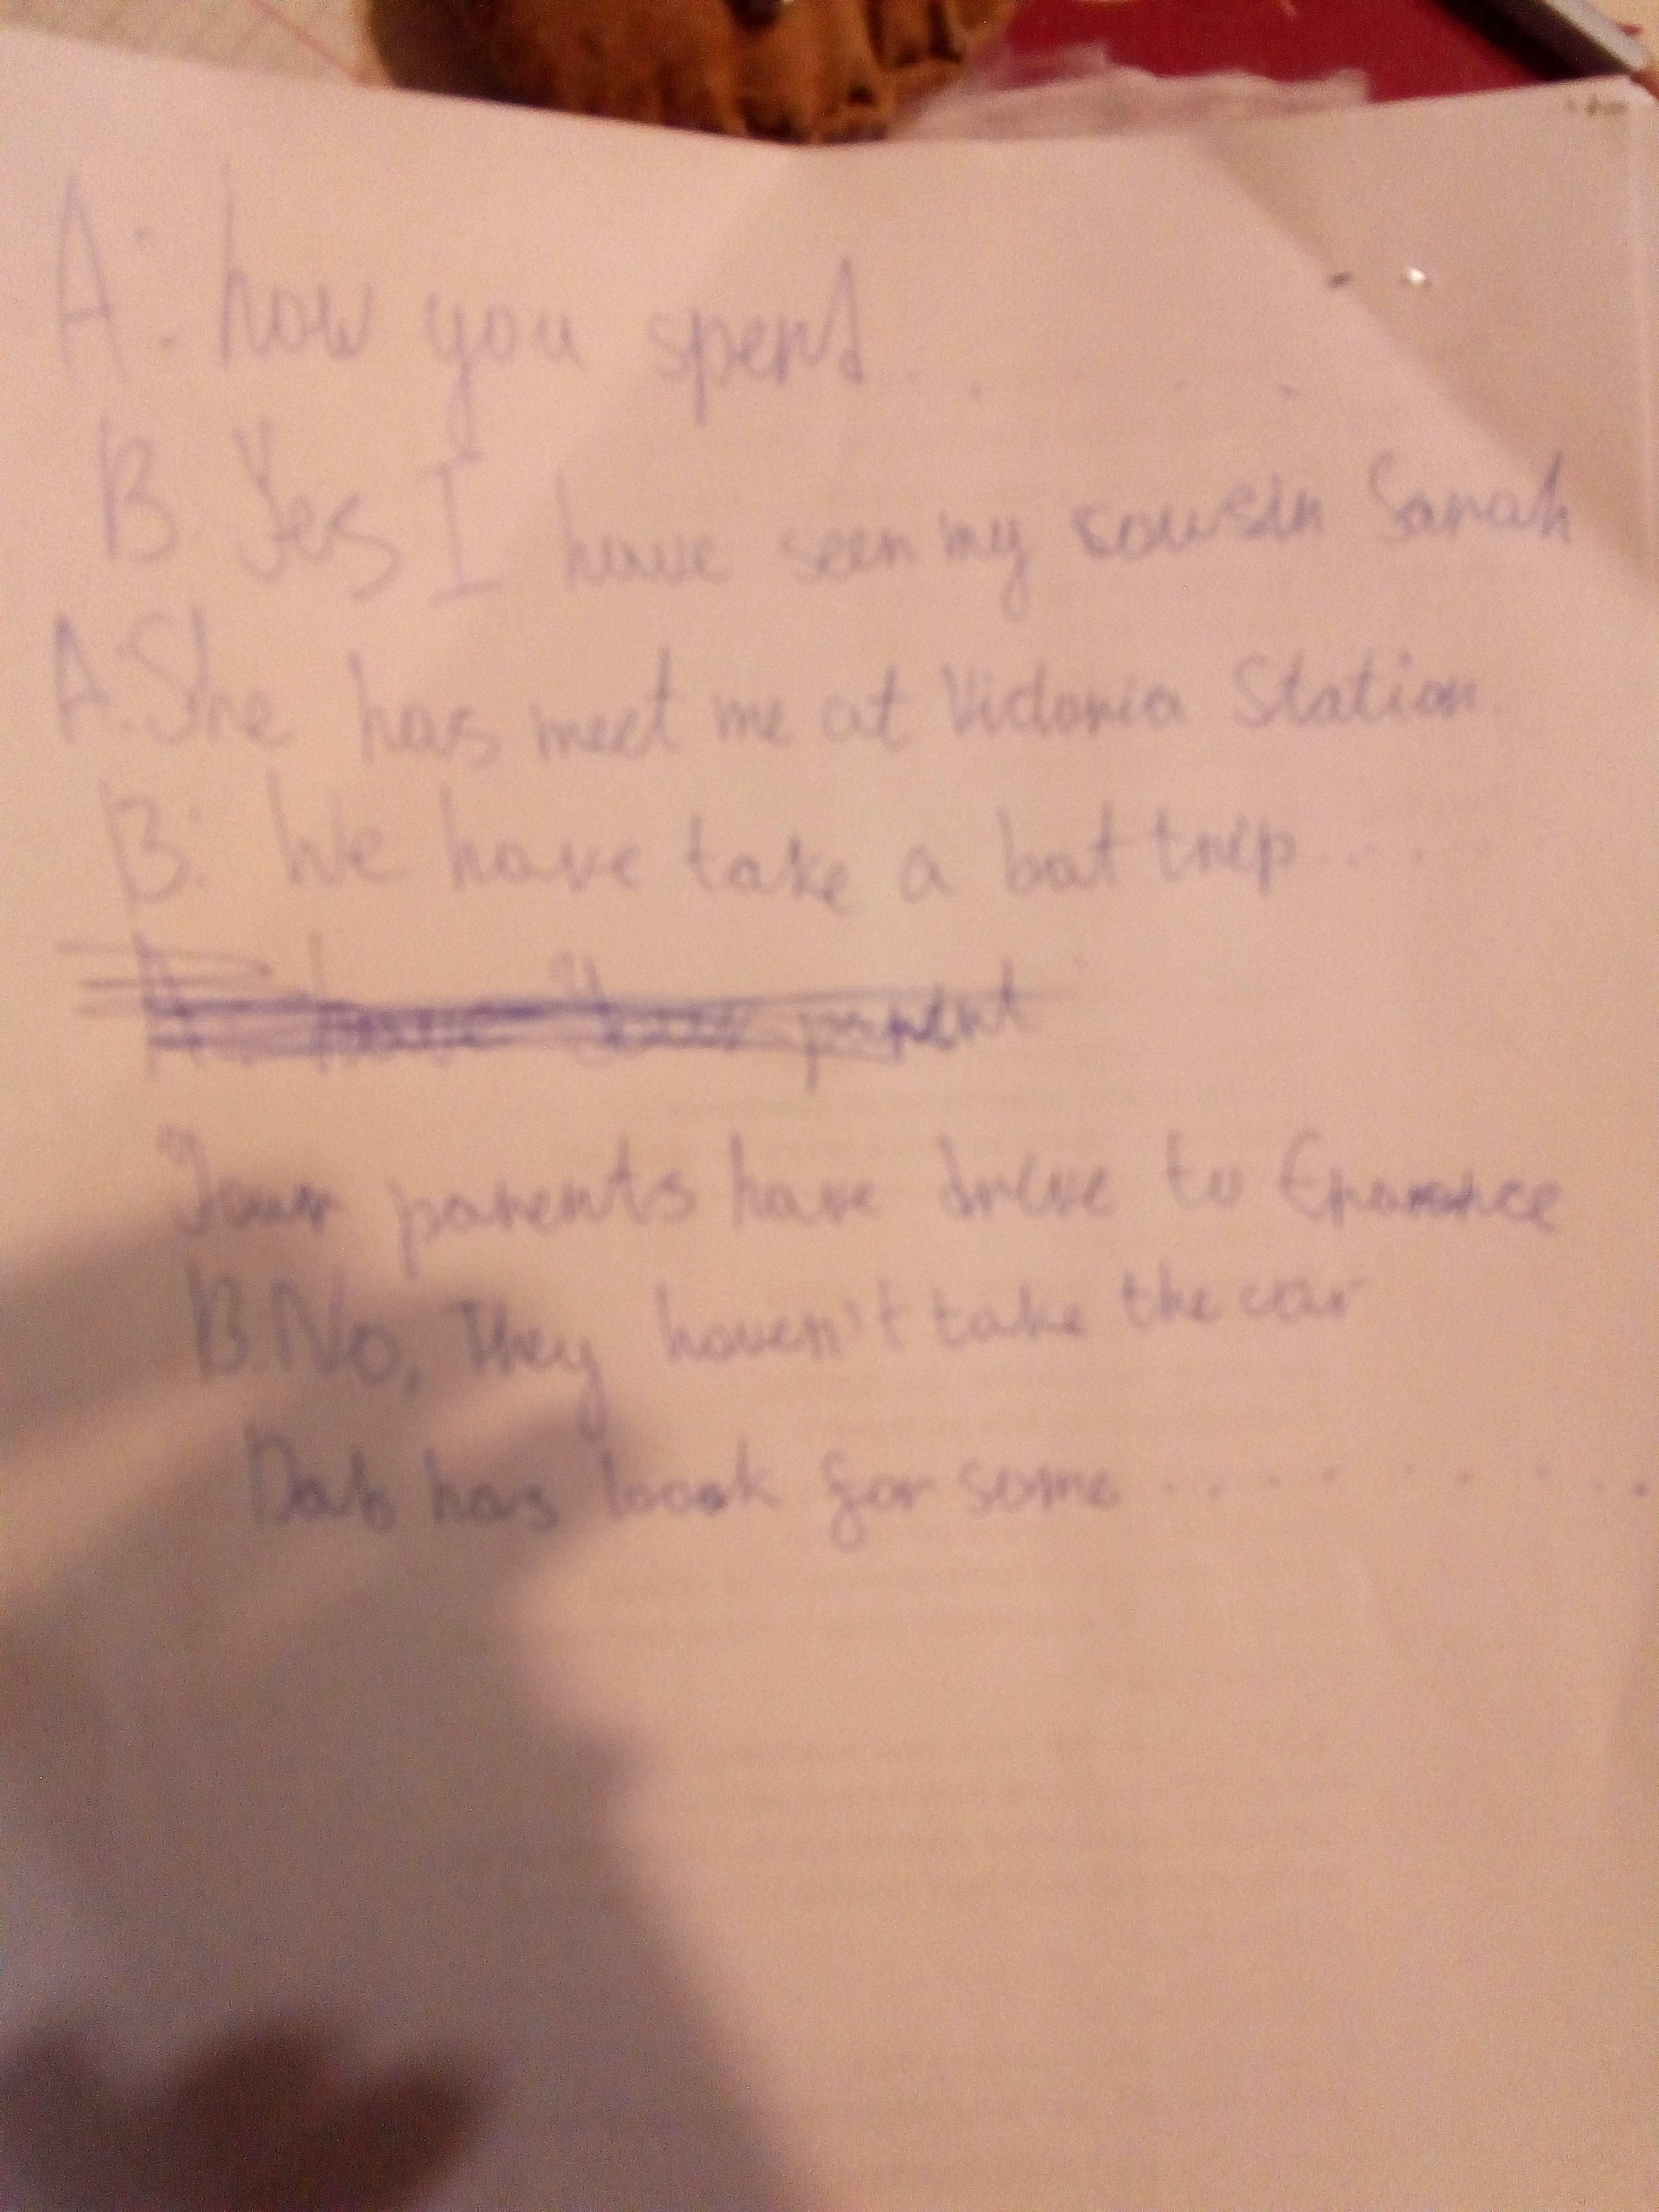 A: how you spend . . . .
B. Yes I have seen my cousin Sarah
A. She has meet me at Victoria Station.
B: We have take a bat trip.....
have your parent
Your parents have drive to
B. No, They haven't take the car
Dab has look for some ........